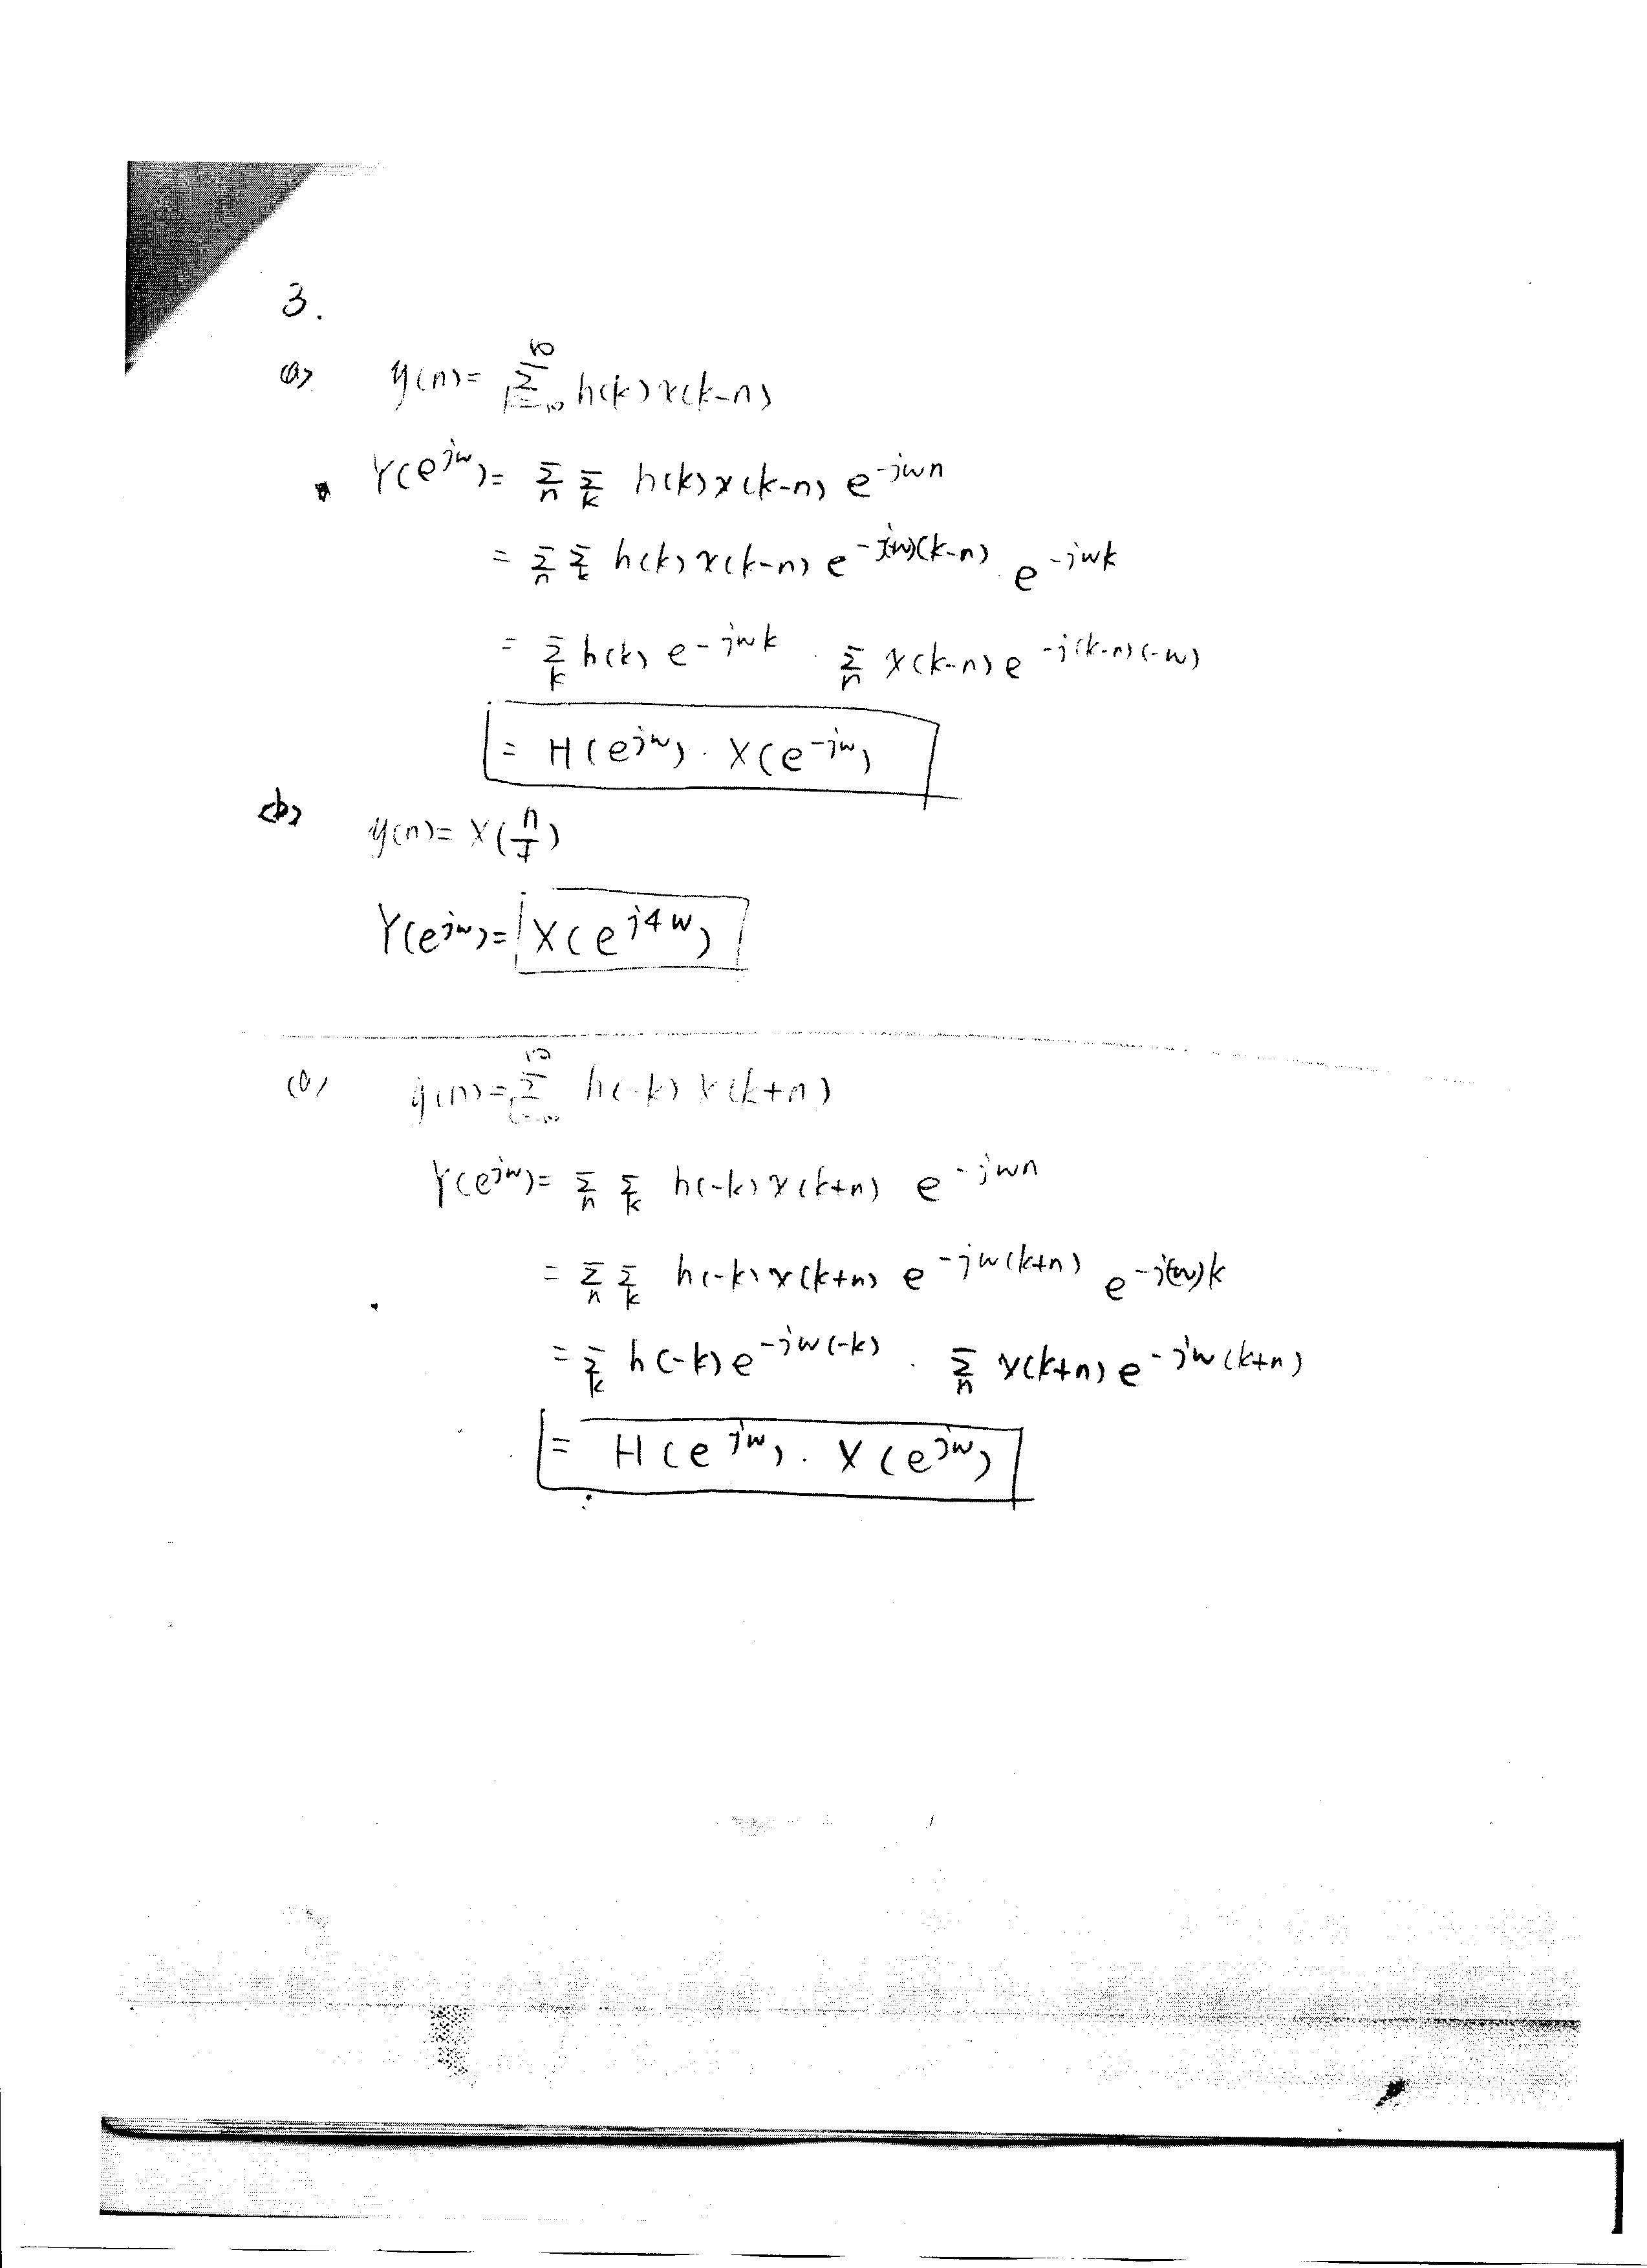 3.
(a) y(n) = ∑_{k=-∞}^{∞} h(k) x(k-n)
Y(e^{jw}) = ∑_n ∑_k h(k) x(k-n) e^{-jwn}
= ∑_n ∑_k h(k) x(k-n) e^{-j(-w)(k-n)} · e^{-jwk}
= ∑_k h(k) e^{-jwk} · ∑_n x(k-n) e^{-j(k-n)(-w)}
= H(e^{jw}) · X(e^{-jw})
(b) y(n) = x(n/4)
Y(e^{jw}) = X(e^{j4w})
y(n) = ∑_{k=-∞}^{∞} h(-k) x(k+n)
Y(e^{jw}) = ∑_n ∑_k h(-k) x(k+n) e^{-jwn}
= ∑_n ∑_k h(-k) x(k+n) e^{-jw(k+n)} e^{-j(-w)k}
= ∑_k h(-k) e^{-jw(-k)} · ∑_n x(k+n) e^{-jw(k+n)}
= H(e^{jw}) · X(e^{jw})